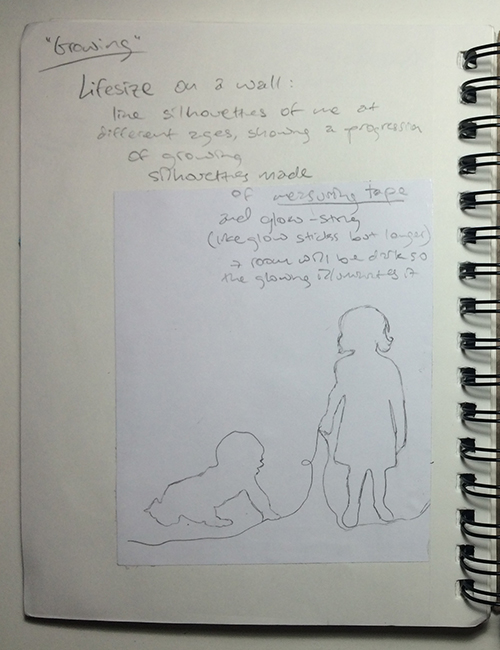 "Growing"
Lifesize on a wall:
line silhouettes of me at
different ages, showing a progression
of growing
silhouettes made
of measuring tape
and glow-string
(like glow sticks but longer)
→ room will be dark so
the glowing illuminates it